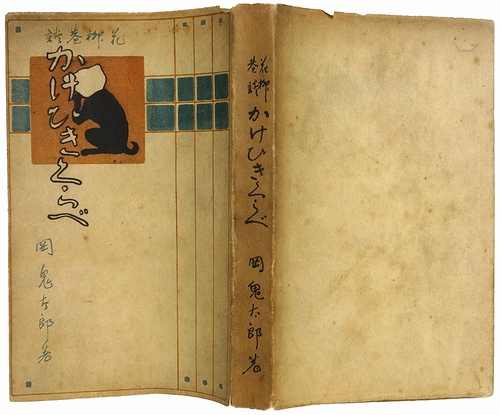 花柳巷談
かけひきくらべ
岡鬼太郎著
花柳
巷談
かけひきくらべ
岡鬼太郎著